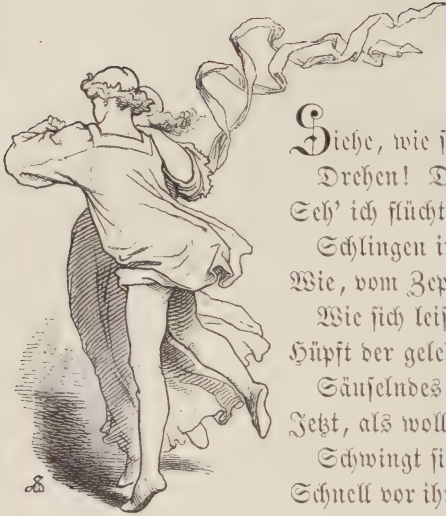 Siehe, wie s
Drehen! D
Seh' ich flücht
Schlingen i
Wie, vom Zep
Wie sich leis
Hüpft der geleh
Säuselndes
Jetzt, als woll
Schwingt si
Schnell vor ihr